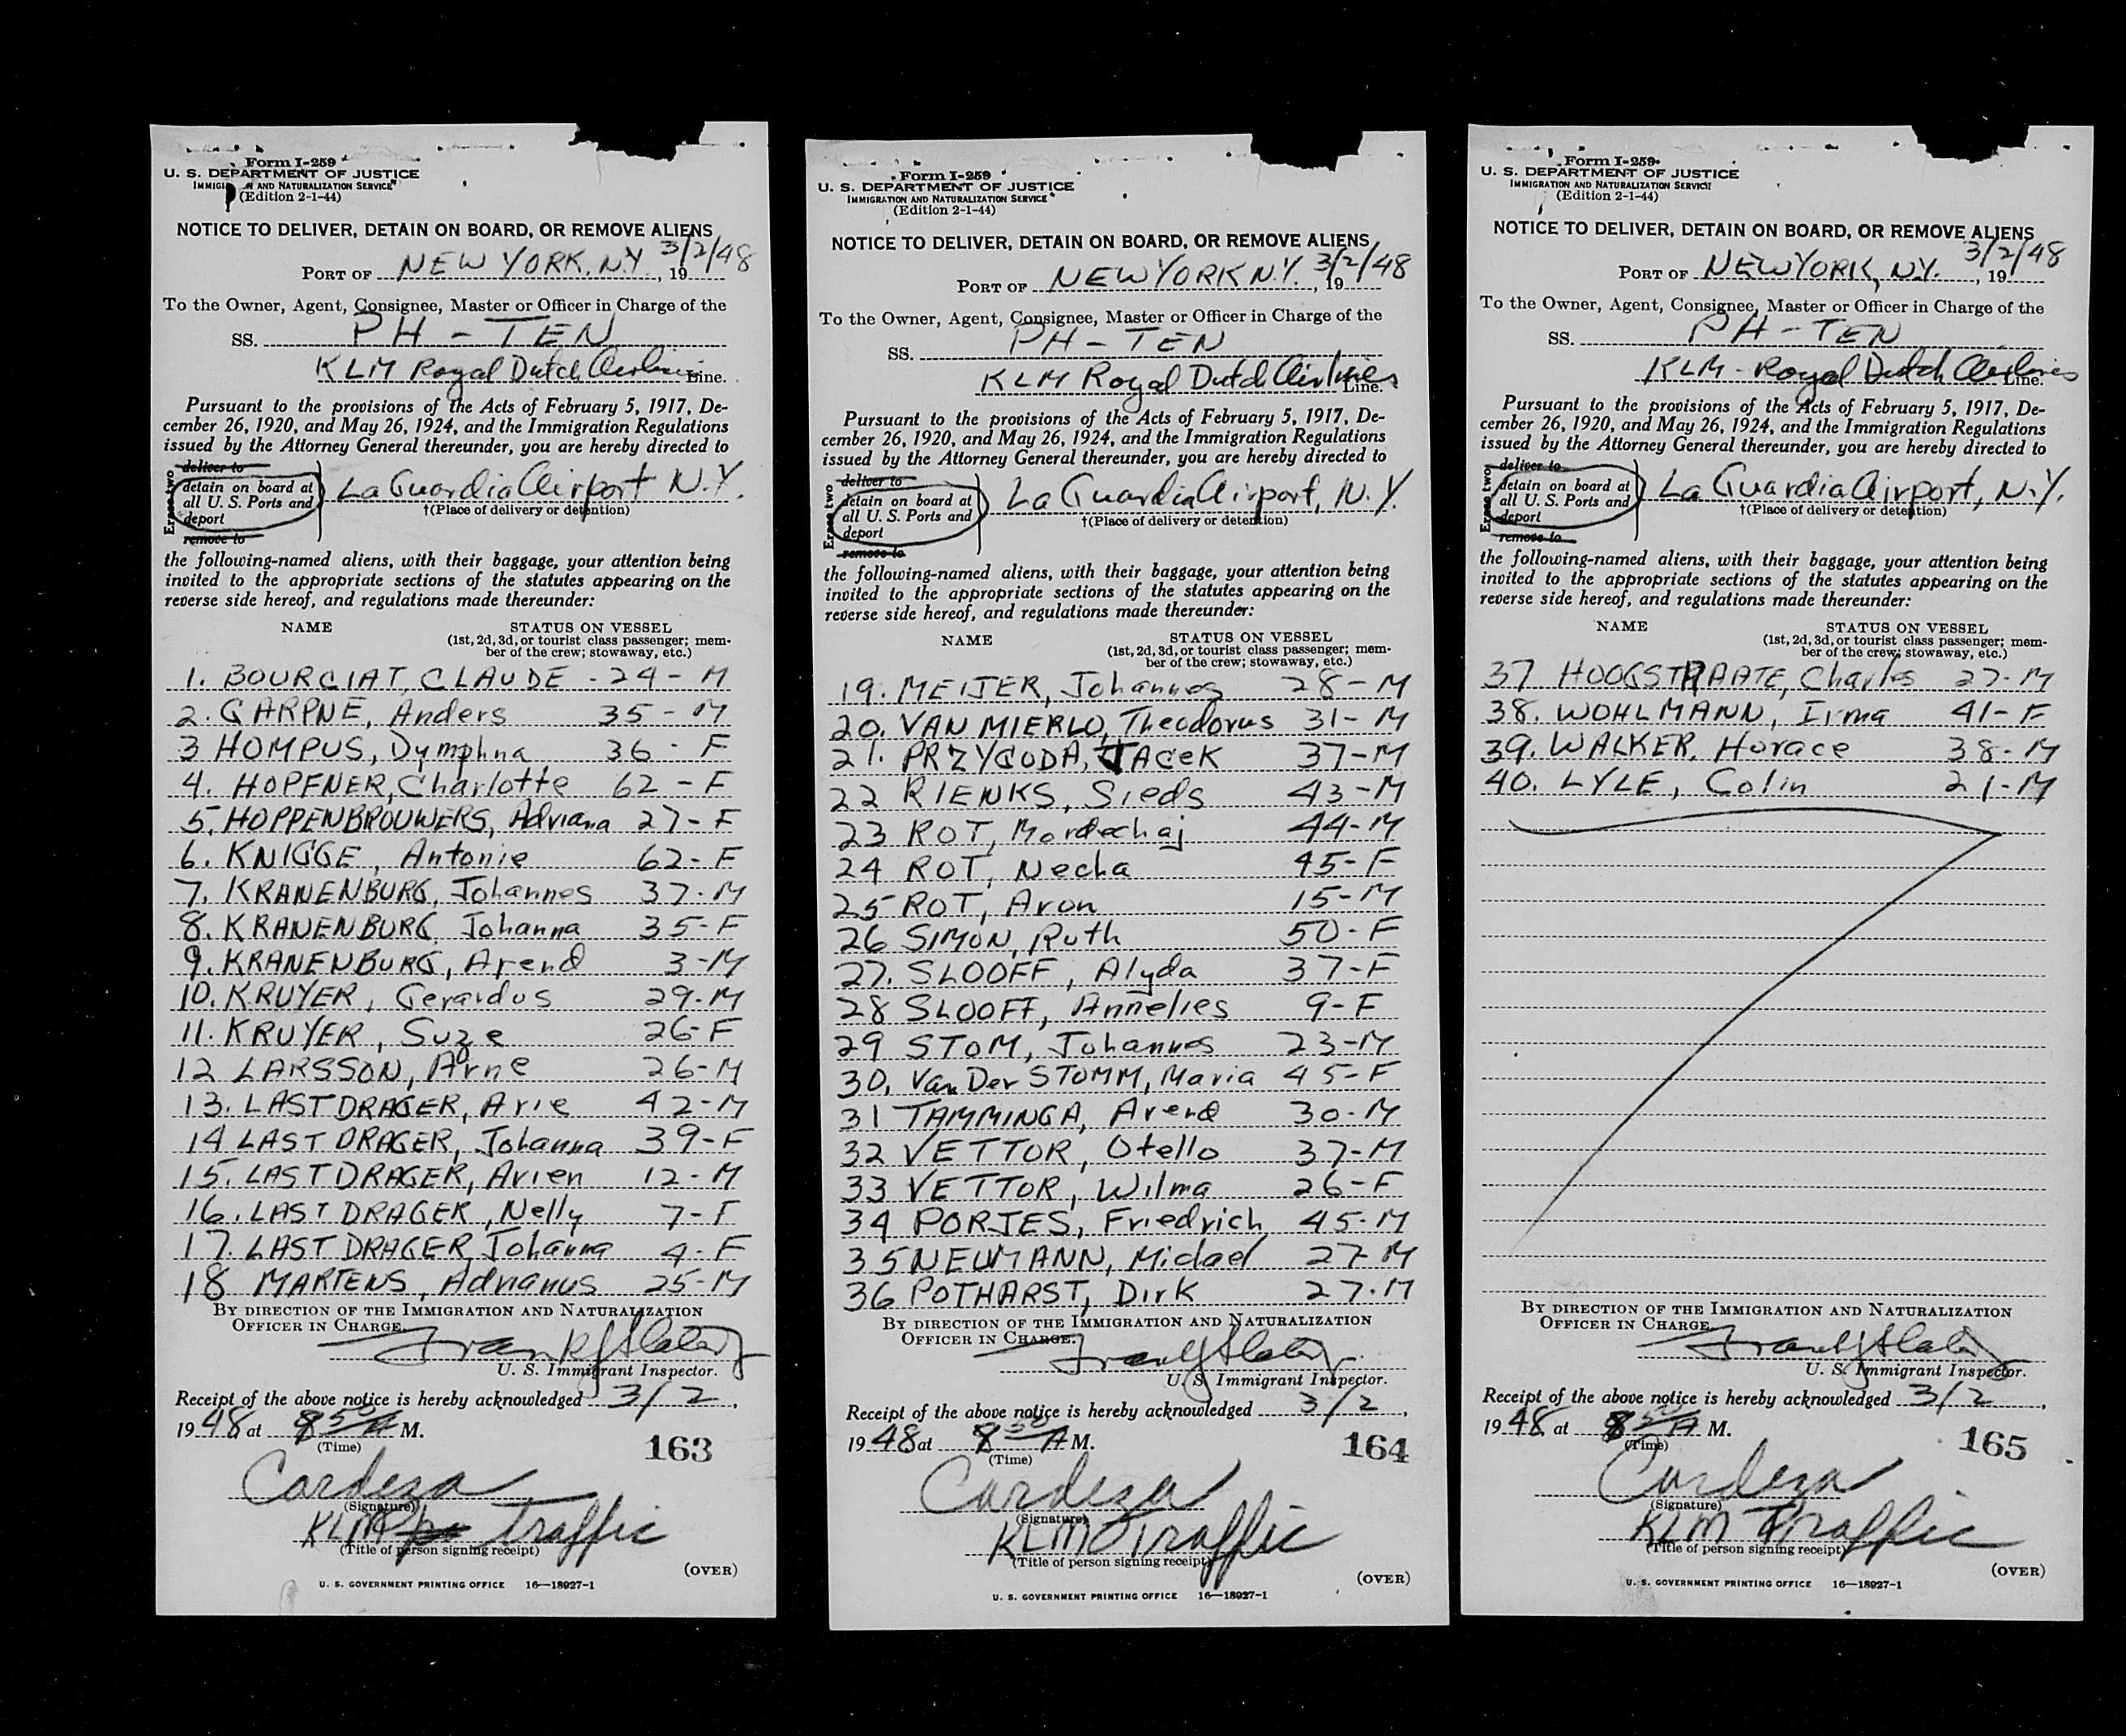 Form I-259
U. S. DEPARTMENT OF JUSTICE
IMMIGRATION AND NATURALIZATION SERVICE
(Edition 2-1-44)
NOTICE TO DELIVER, DETAIN ON BOARD, OR REMOVE ALIENS
PORT OF NEW YORK. N.Y., 19 3/2/48
To the Owner, Agent, Consignee, Master or Officer in Charge of the
SS. PH - TEN
KLM Royal Dutch Airlines Line.
Pursuant to the provisions of the Acts of February 5, 1917, De-
cember 26, 1920, and May 26, 1924, and the Immigration Regulations
issued by the Attorney General thereunder, you are hereby directed to
Erase two
deliver to
detain on board at
all U. S. Ports and
deport
remove to
La Guardia Airport N.Y.
†(Place of delivery or detention)
the following-named aliens, with their baggage, your attention being
invited to the appropriate sections of the statutes appearing on the
reverse side hereof, and regulations made thereunder:
NAME STATUS ON VESSEL
(1st, 2d, 3d, or tourist class passenger; mem-
ber of the crew; stowaway, etc.)
1. BOURCIAT, CLAUDE - 24 - M
2. GARPNE, Anders 35 - M
3 HOMPUS, Dymphna 36 - F
4. HOPFNER, Charlotte 62 - F
5. HOPPENBROUWERS, Adriana 27 - F
6. KNIGGE, Antonie 62 - F
7. KRANENBURG, Johannes 37 - M
8. KRANENBURG, Johanna 35 - F
9. KRANENBURG, Arend 3 - M
10. KRUYER, Gerardus 29 - M
11. KRUYER, Suze 26 - F
12 LARSSON, Arne 26 - M
13. LASTDRAGER, Arie 42 - M
14 LAST DRAGER, Johanna 39 - F
15. LAST DRAGER, Arien 12 - M
16. LAST DRAGER, Nelly 7 - F
17. LAST DRAGER Johanna 4 - F
18 MARTENS, Adrianus 25 - M
BY DIRECTION OF THE IMMIGRATION AND NATURALIZATION
OFFICER IN CHARGE.
U. S. Immigrant Inspector.
Receipt of the above notice is hereby acknowledged 3/2,
19 48 at 8 50 A M.
(Time)
163
Cardeza
(Signature)
KLM Traffic
(Title of person signing receipt)
(OVER)
U. S. GOVERNMENT PRINTING OFFICE 16—18927-1
Form I-259
U. S. DEPARTMENT OF JUSTICE
IMMIGRATION AND NATURALIZATION SERVICE
(Edition 2-1-44)
NOTICE TO DELIVER, DETAIN ON BOARD, OR REMOVE ALIENS
PORT OF NEW YORK N.Y., 19 3/2/48
To the Owner, Agent, Consignee, Master or Officer in Charge of the
SS. PH - TEN
KLM Royal Dutch Airlines Line.
Pursuant to the provisions of the Acts of February 5, 1917, De-
cember 26, 1920, and May 26, 1924, and the Immigration Regulations
issued by the Attorney General thereunder, you are hereby directed to
Erase two
deliver to
detain on board at
all U. S. Ports and
deport
remove to
La Guardia Airport, N.Y.
†(Place of delivery or detention)
the following-named aliens, with their baggage, your attention being
invited to the appropriate sections of the statutes appearing on the
reverse side hereof, and regulations made thereunder:
NAME STATUS ON VESSEL
(1st, 2d, 3d, or tourist class passenger; mem-
ber of the crew; stowaway, etc.)
19. MEIJER, Johannes 28 - M
20. VAN MIERLO, Theodorus 31 - M
21. PRZYGODA, JACEK 37 - M
22 RIENKS, Sieds 43 - M
23 ROT, Mordechaj 44 - M
24 ROT, Necha 45 - F
25 ROT, Aron 15 - M
26 SIMON, Ruth 50 - F
27. SLOOFF, Alyda 37 - F
28 SLOOFF, Annelies 9 - F
29 STOM, Johannes 23 - M
30. Van Der STOMM, Maria 45 - F
31 TAMMINGA, Arend 30 - M
32 VETTOR, Otello 37 - M
33 VETTOR, Wilma 26 - F
34 PORJES, Friedrich 45 - M
35 NEUMANN, Michael 27 M
36 POTHARST, Dirk 27 - M
BY DIRECTION OF THE IMMIGRATION AND NATURALIZATION
OFFICER IN CHARGE.
U. S. Immigrant Inspector.
Receipt of the above notice is hereby acknowledged 3/2,
19 48 at 8 50 A M.
(Time)
164
Cardeza
(Signature)
KLM Traffic
(Title of person signing receipt)
(OVER)
U. S. GOVERNMENT PRINTING OFFICE 16—18927-1
Form I-259
U. S. DEPARTMENT OF JUSTICE
IMMIGRATION AND NATURALIZATION SERVICE
(Edition 2-1-44)
NOTICE TO DELIVER, DETAIN ON BOARD, OR REMOVE ALIENS
PORT OF NEW YORK, N.Y., 19 3/2/48
To the Owner, Agent, Consignee, Master or Officer in Charge of the
SS. PH - TEN
KLM - Royal Dutch Airlines Line.
Pursuant to the provisions of the Acts of February 5, 1917, De-
cember 26, 1920, and May 26, 1924, and the Immigration Regulations
issued by the Attorney General thereunder, you are hereby directed to
Erase two
deliver to
detain on board at
all U. S. Ports and
deport
remove to
La Guardia Airport, N.Y.
†(Place of delivery or detention)
the following-named aliens, with their baggage, your attention being
invited to the appropriate sections of the statutes appearing on the
reverse side hereof, and regulations made thereunder:
NAME STATUS ON VESSEL
(1st, 2d, 3d, or tourist class passenger; mem-
ber of the crew; stowaway, etc.)
37 HOOGSTRAATE, Charles 27 - M
38. WOHLMANN, Irma 41 - F
39. WALKER, Horace 38 - M
40. LYLE, Colin 21 - M
BY DIRECTION OF THE IMMIGRATION AND NATURALIZATION
OFFICER IN CHARGE.
U. S. Immigrant Inspector.
Receipt of the above notice is hereby acknowledged 3/2,
19 48 at 8 50 A M.
(Time)
165
Cardeza
(Signature)
KLM Traffic
(Title of person signing receipt)
(OVER)
U. S. GOVERNMENT PRINTING OFFICE 16—18927-1